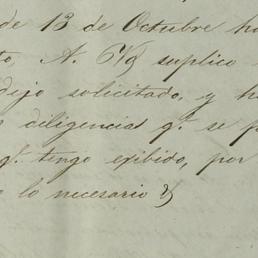 de 13 de Octubre
to, A. suplico
dejo solicitado, y h
diligencias q.e se p
q.e tengo exibido, por
o lo necesario &